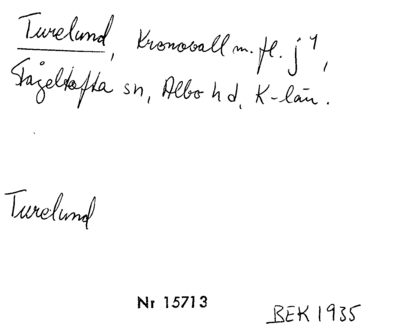 Turelund, Kronovall m. fl. j⁴,
Fågeltofta sn, Albo hd, K-län.
Turelund
Nr 15713
BEK 1935